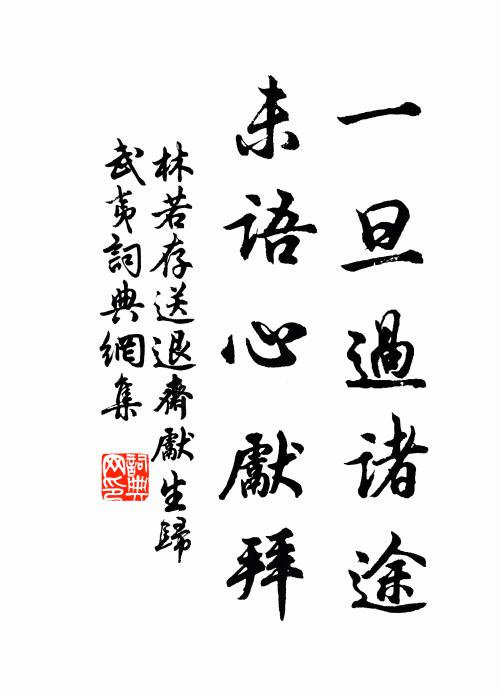 一旦過諸途
未語心獻拜
林若存送退齋獻生歸
武夷詞典網集
詞典網印